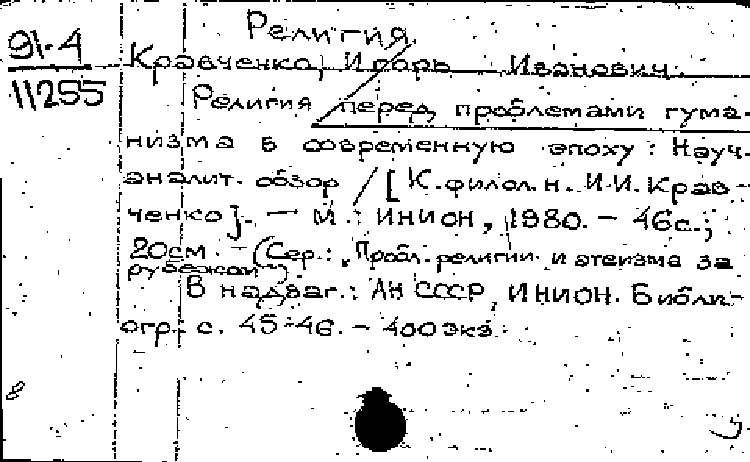 Религия
91-4
11255
Кравченко, Игорь Иванович.
Религия перед проблемами гума-
низма в современную эпоху: Науч.-
аналит. обзор / [К. филол. н. И.И. Крав-
ченко]. — М.: ИНИОН, 1980. — 46с.;
20см. — (Сер.: Пробл. религии и атеизма за
рубежом).
В надзаг.: АН СССР, ИНИОН. Библи-
огр. с. 45-46. — 400 экз.
8